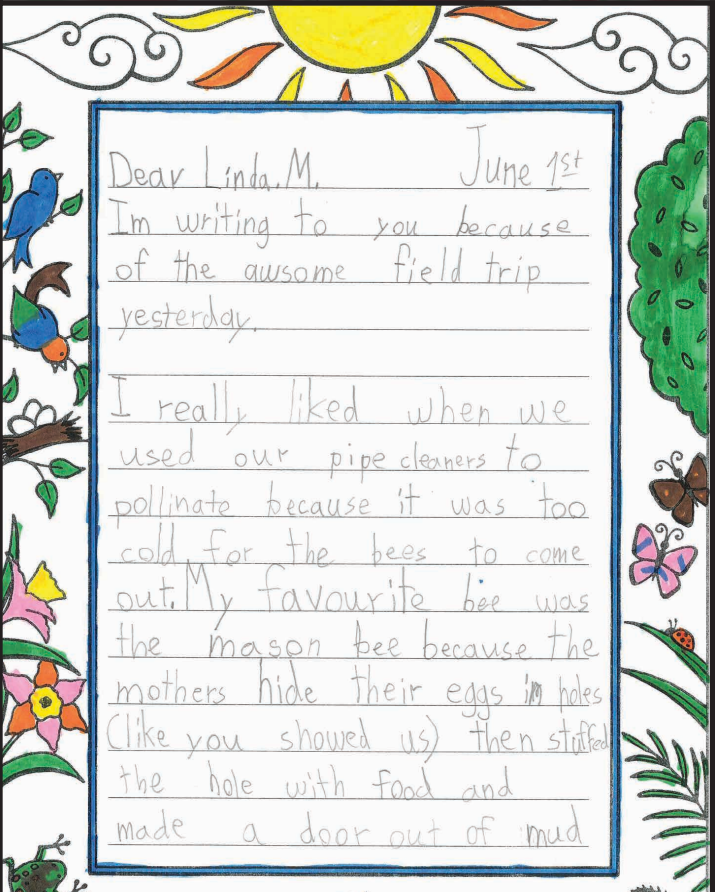 Dear Linda. M. June 1st
Im writing to you because
of the awsome field trip
yesterday.
I really liked when we
used our pipe cleaners to
pollinate because it was too
cold for the bees to come
out. My favourite bee was
the mason bee because the
mothers hide their eggs in holes
(like you showed us) then stuffed
the hole with food and
made a door out of mud